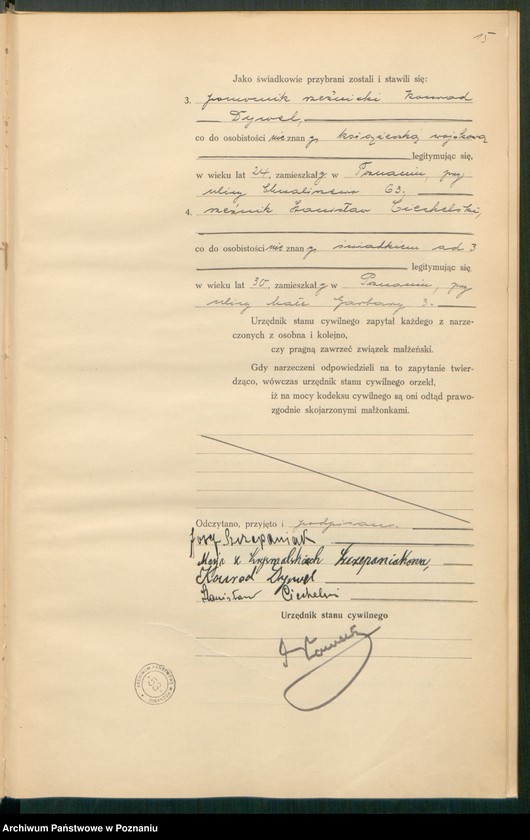 15
Jako świadkowie przybrani zostali i stawili się:
3. pomocnik rzeźnicki Konrad
Dyzeł,
co do osobistości nie znany, książeczką wojskową
legitymując się,
w wieku lat 24, zamieszkały w Poznaniu, przy
ulicy 63.
4. rzeźnik Stanisław Ciechelski,
co do osobistości nie znany, świadkiem ad 3
legitymując się
w wieku lat 35, zamieszkały w Poznaniu, przy
ulicy Małe Garbary 3.
Urzędnik stanu cywilnego zapytał każdego z narze-
czonych z osobna i kolejno,
czy pragną zawrzeć związek małżeński.
Gdy narzeczeni odpowiedzieli na to zapytanie twier-
dząco, wówczas urzędnik stanu cywilnego orzekł,
iż na mocy kodeksu cywilnego są oni odtąd prawo-
zgodnie skojarzonymi małżonkami.
Odczytano, przyjęto i podpisano.
Józef Szczepaniak
Maria z Szczepaniakowa,
Konrad Dyzeł
Stanisław Ciechelski
Urzędnik stanu cywilnego
Archiwum Państwowe w Poznaniu